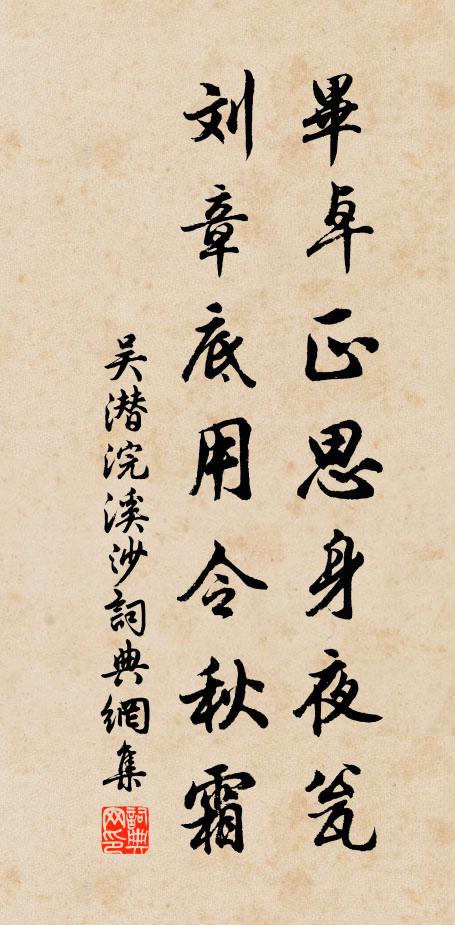 畢卓正思身夜瓮
刘章底用令秋霜
吴潜浣溪沙詞典網集
詞典網印